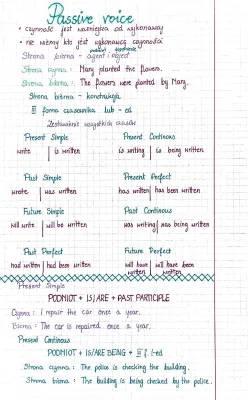 Passive voice
• czynność jest ważniejsza od wykonawcy
• nie wiemy kto jest wykonawcą czynności
Strona bierna - agent i object
Strona czynna : Mary planted the flowers.
Strona bierna : The flowers were planted by Mary.
Strona bierna - konstrukcja
III forma czasownika lub -ed
Zestawienie wszystkich czasów
Present Simple Present Continous
write is written is writing is being written
Past Simple Present Perfect
wrote was written has written has been written
Future Simple Past Continous
will write will be written was writing was being written
Past Perfect Future Perfect
had written had been written will have written will have been written
Present Simple
PODMIOT + IS/ARE + PAST PARTICIPLE
Czynna : I repair the car once a year.
Bierna : The car is repaired once a year.
Present Continous
PODMIOT + IS/ARE BEING + III f. /-ed
Strona czynna : The police is checking the building.
Strona bierna : The building is being checked by the police.